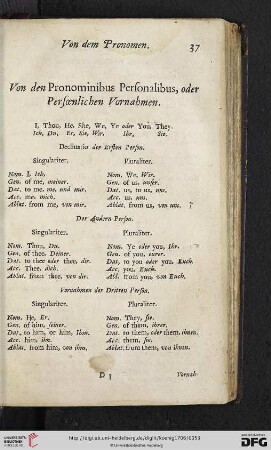 Von dem Pronomen. 37
Von den Pronominibus Personalibus, oder
Persœnlichen Vornahmen.
I, Thou, He, She, We, Ye oder You, They.
Ich, Du, Er, Sie, Wir, Ihr, Sie.
Declinatio der Ersten Person.
Singulariter. Pluraliter.
Nom. I, Ich. Nom. We, Wir.
Gen. of me, meiner. Gen. of us, unser.
Dat. to me, me, und mir. Dat. us, to us, uns.
Acc. me, mich. Acc. us, uns.
Ablat. from me, von mir. Ablat. from us, von uns.
Der Andern Person.
Singulariter. Pluraliter.
Nom. Thou, Du. Nom. Ye oder you, Ihr.
Gen. of thee, Deiner. Gen. of you, eurer.
Dat. to thee oder thee, dir. Dat. to you oder you, Euch.
Acc. Thee, dich. Acc. you, Euch.
Ablat. from thee, von dir. Abl. from you, von Euch.
Vornahmen der Dritten Person.
Singulariter. Pluraliter.
Nom. He, Er. Nom. They, sie.
Gen. of him, seiner. Gen. of them, ihrer.
Dat. to him, or him, Ihm. Dat. to them, oder them, ihnen.
Acc. him, ihn. Acc. them, sie.
Ablat. from him, von ihm. Ablat. from them, von ihnen.
D 3 Vornah-
UNIVERSITÄTS-
BIBLIOTHEK
HEIDELBERG
http://digi.ub.uni-heidelberg.de/diglit/koenig1706/0053
© Universitätsbibliothek Heidelberg
gefördert durch die
DFG